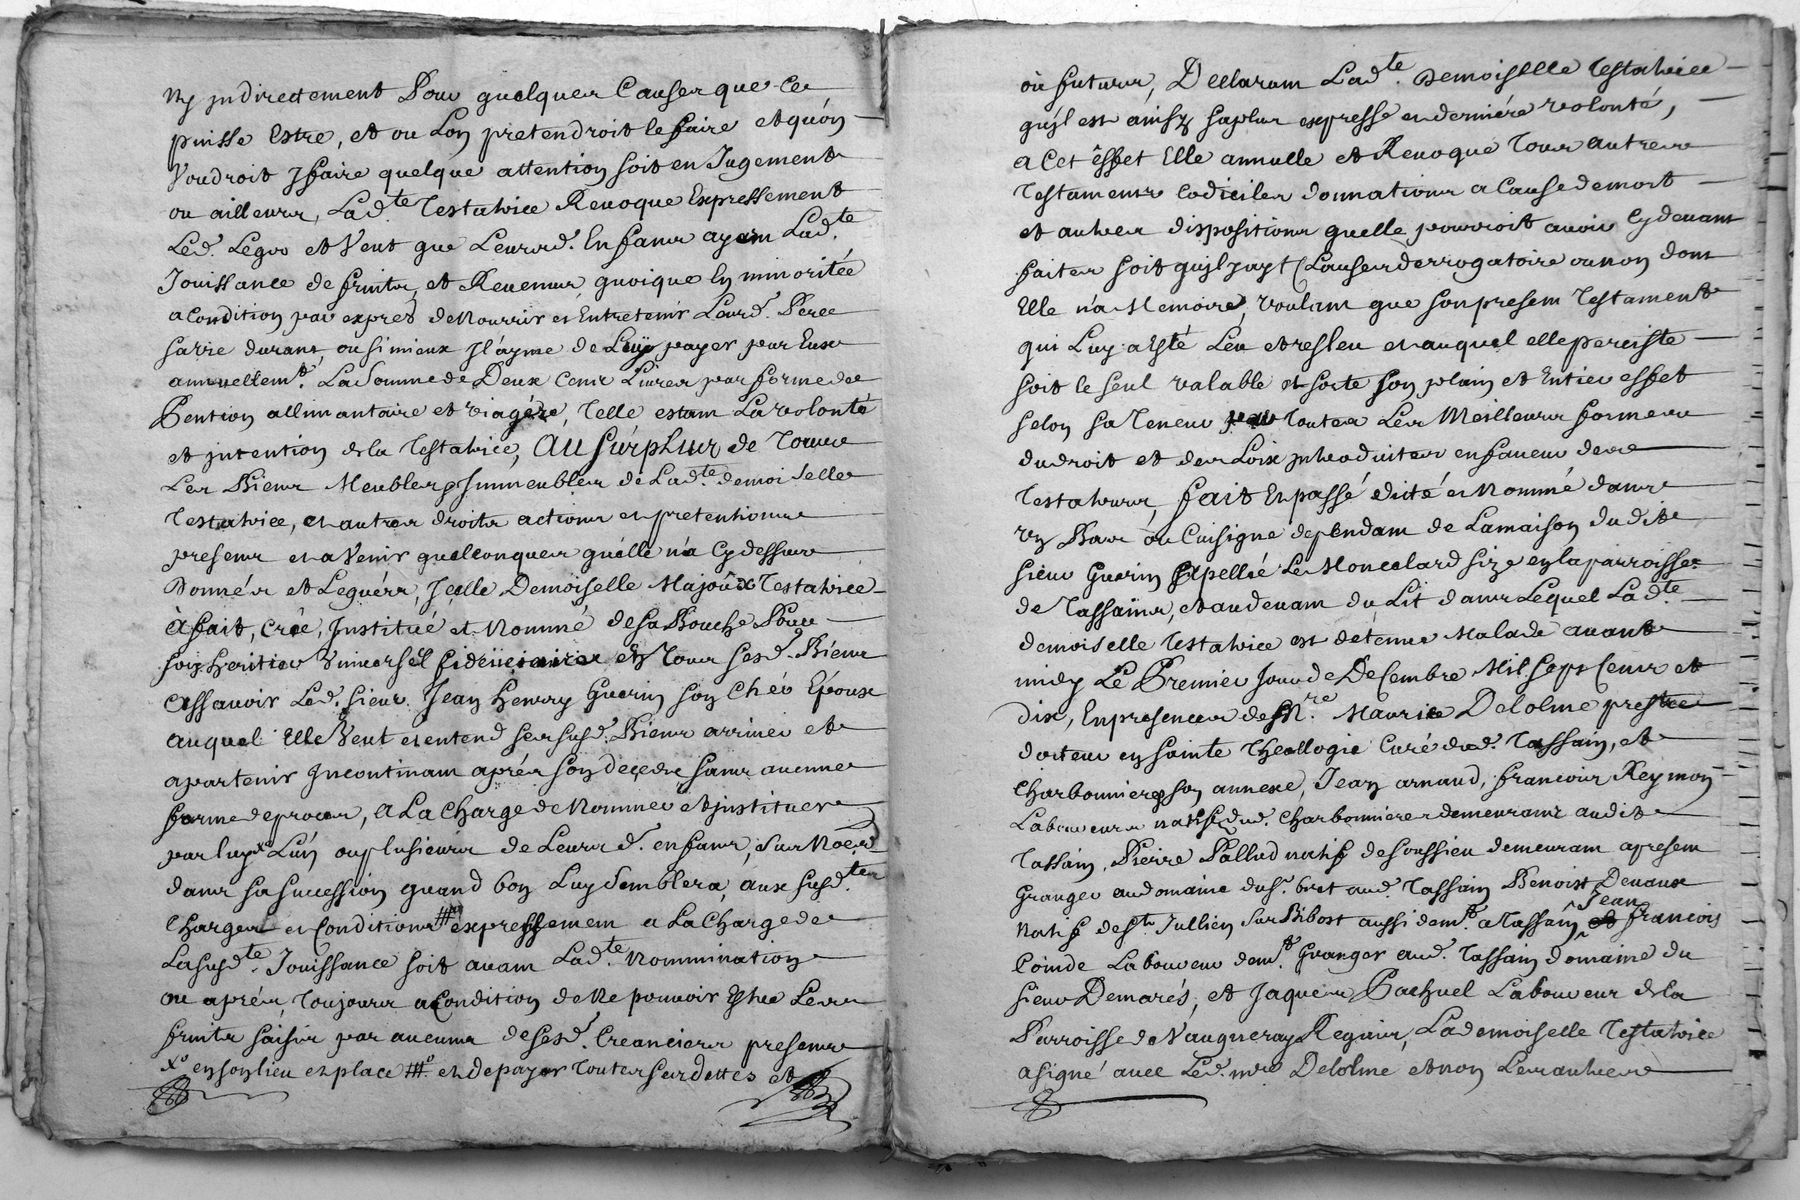 Ny jndirectement Pour quelques Causes que ce
puisse Estre, et ou Lon pretendroit le faire et quón
Voudroit y faire quelque attention soit en Jugement
ou ailleurs, Lad.te Testatrice Revoque Expressement
Led. Legs et Veut que Leursd. Enfans ayem Lad.te
Jouissance de fruits, et Revenus quoique En minoritée
a Condition par exprés de Nourrir et Entretenir Leurd. Pere
sa vie durant, ou si mieux Jl áyme de Luy payer pour Eux
annuellemt. La Somme de Deux Cens Livres par forme de
Pention allimantaire et viagére, Telle estant La volonté
et jntention de la Testatrice, Au Surplus de Tous
Les Biens Meubles jmmeubles de Lad.te demoiselle
Testatrice, et autres droits actions et pretentions
presens et a Venir quelconques quélle n'a Cy dessus
Donnés et Legués, Jcelle Demoiselle Testatrice
à fait, Crée, Jnstitué et Nommé de sa Bouche Pour
son heritier Universel fideiiciaire Tous sesd. Biens
assavoir Led. Sieur Jean Henry Guerin son Chér Epoux
auquel Elle Veut et entend ses susd. Biens arriver et
apartenir Jncontinam aprés son decedz sans aucune
forme de procés, A La Charge de Nommer et jnstituer
par luy x Lún ou plusieurs de Leurs d. enfans, Sur Noëd
dans sa succession quand bon Luy Semblera, aux susd.tes
Charges et Conditions ## expressemem a La Charge de
La susd.te Jouissance soit avam Lad.te Nommination
ou aprés, Toujours a Condition de Ne pouvoir Estre Les
fruits saisis par aucuns de sesd. Creanciers presens
x en son lieu et place ## et de payer Toutes ses dettes et
où futurs, Declaram Lad.te Demoiselle Testatrice
quil est áinsy sa plus expresse et derniére volonté,
a Cet éffet Elle annulle et Revoque Tous autres
Testamens Codiciles donnations a Cause de mort
et autres dispositions quelle pourroit avoir Cy devant
faites soit quil y ayt Clauses derrogatoire ou non dont
Elle n'a Memoire, Voulam que son presem Testament
qui Luy a Esté Leu et resleu et auquel elle perciste
soit le seul valable et sorte son plain et Entier effet
selon sa Teneur par Toutes Les Meilleurs formes
du droit et des Loix jntroduites en faveur des
Testateurs, fait Et passé dicté et Nommé dans
un Bas ou Cuisigne dependam de La maison dudit
sieur Guerin appellée Le Moncelard size en la parroisse
de Tassains, et au devam du Lit dans Lequel Lad.te
demoiselle Testatrice est detenue Malade avant
midy Le Premier Jour de Decembre Mil Sept Cens et
dix, En presences de M.re Maurice Delolme prestre
docteur en sainte Theollogie Curé dud. Tassain, et
Charbonnieres son annexe, Jean arnaud, francois Reymon
Laboureurs natifs dud. Charbonnieres demeurans audit
Tassain, Pierre Pallud natif de Soussieu demeuram apresem
Granger au domaine du Sr. bret aud. Tassain Benoist Devaux
Natif de St. Jullien Sur Bibost aussi demt. a Tassain Jean francois
Coinde Laboureur demt. Granger aud. Tassain Domaine du
sieur Demarés, et Jaques Pachuel Laboureur de la
Parroisse de Vaugneray Requis, La demoiselle Testatrice
a signé avec Led. mre Delolme et non Les autres